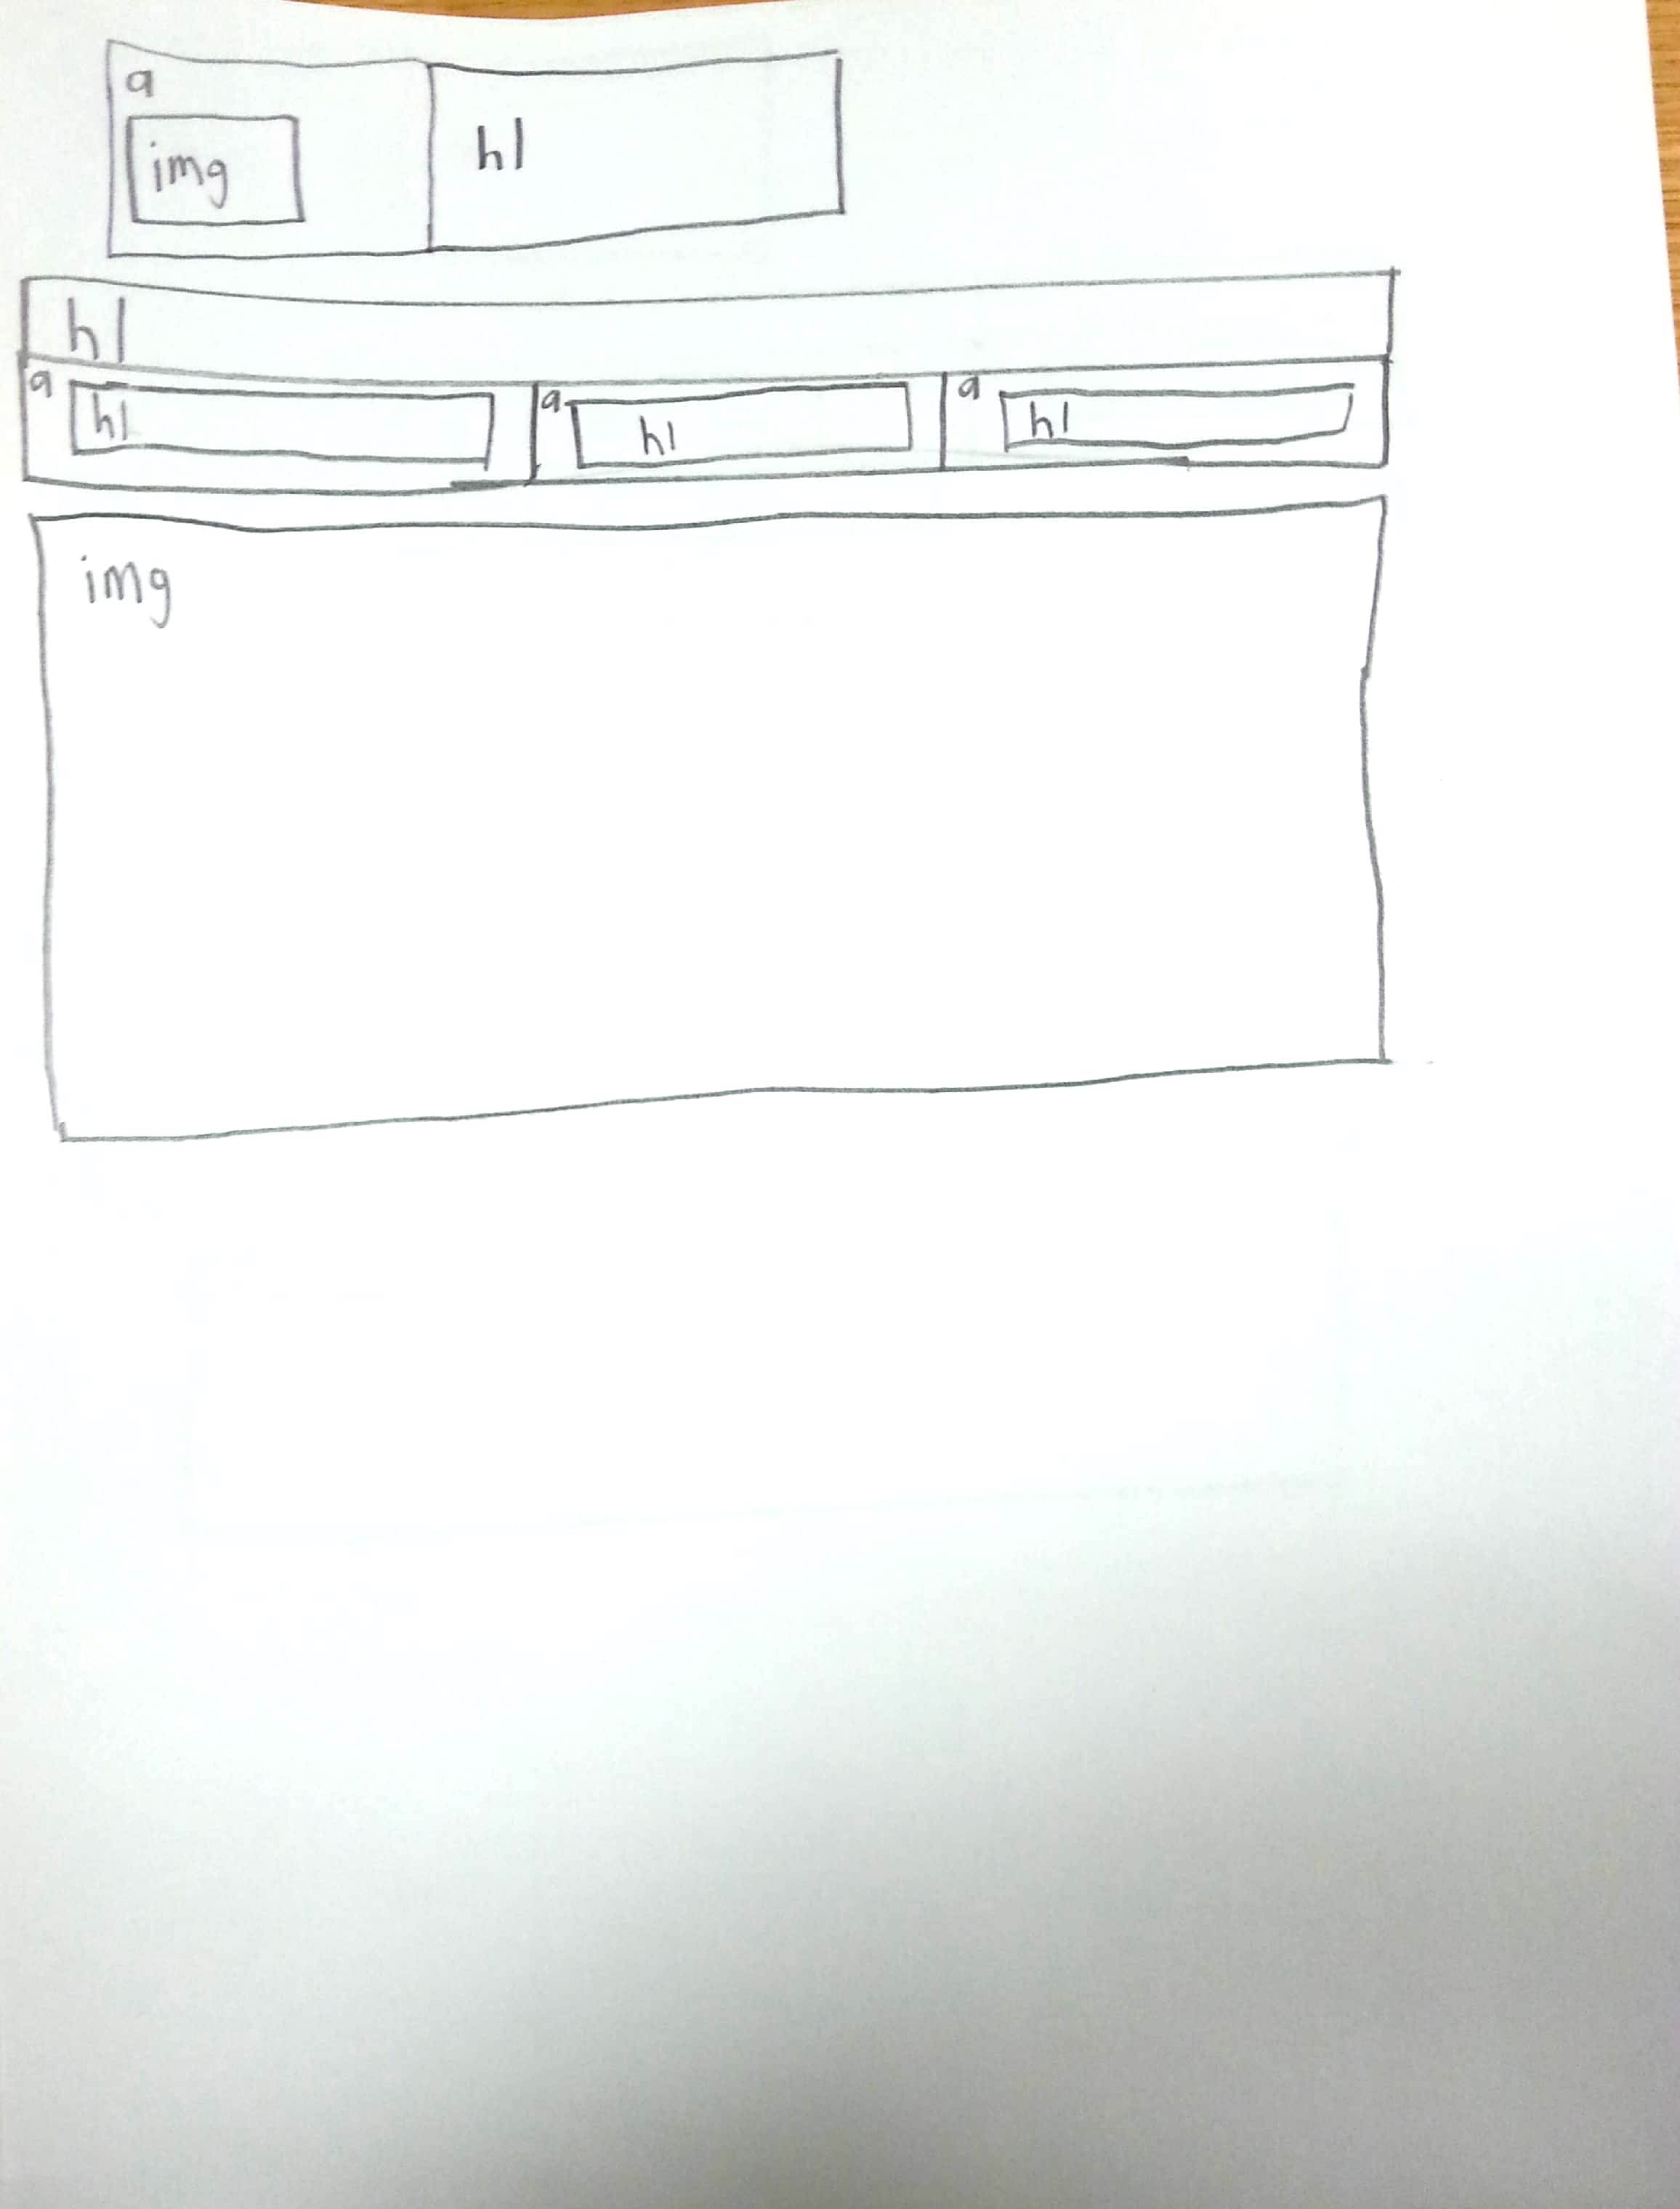 a
img
h1
h1
a h1 a h1 a h1
img